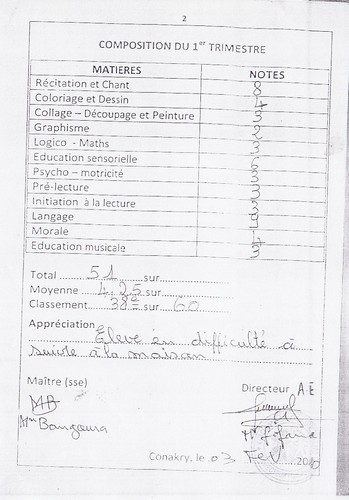 2
COMPOSITION DU 1er TRIMESTRE
MATIERES NOTES
Récitation et Chant 8
Coloriage et Dessin 4
Collage – Découpage et Peinture 3
Graphisme 2
Logico - Maths 3
Education sensorielle 6
Psycho – motricité 3
Pré-lecture 3
Initiation à la lecture 3
Langage
Morale
Education musicale 3
Total 51 sur
Moyenne 4,25 sur
Classement 38è sur 60
Appréciation Elève en difficulté à
suivre à la maison
Maître (sse) Directeur A.E
MB
Mme Bangoura
Conakry, le 03 Fev 2010